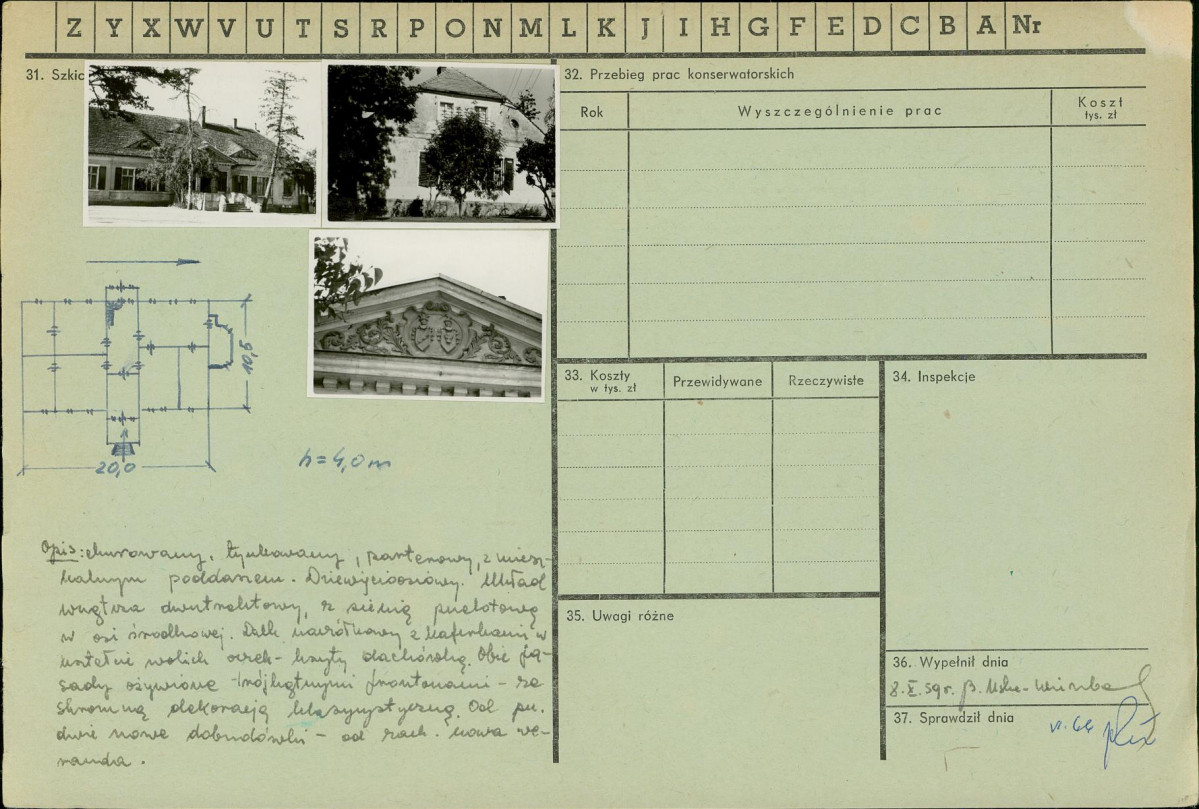 Z Y X W V U T S R P O N M L K J I H G F E D C B A Nr
31. Szkic
20,0
10,9
h = 4,0 m
Opis: murowany, tynkowany, parterowy, z miesz-
kalnym poddaszem. Dziewięcioosiowy. Układ
wnętrza dwutraktowy, z sienią przelotową
w osi środkowej. Dach naczółkowy z kaferkami w
kształcie wolich oczek - kryty dachówką. Obie fa-
sady ożywione trójkątnymi frontonami - ze
skromną dekoracją klasycystyczną. Od pn.
dwie nowe dobudówki - od zach. nowa we-
randa.
32. Przebieg prac konserwatorskich
Rok
Wyszczególnienie prac
Koszt
tys. zł
33. Koszty
w tys. zł
Przewidywane
Rzeczywiste
34. Inspekcje
35. Uwagi różne
36. Wypełnił dnia
8.X.59 r.
37. Sprawdził dnia